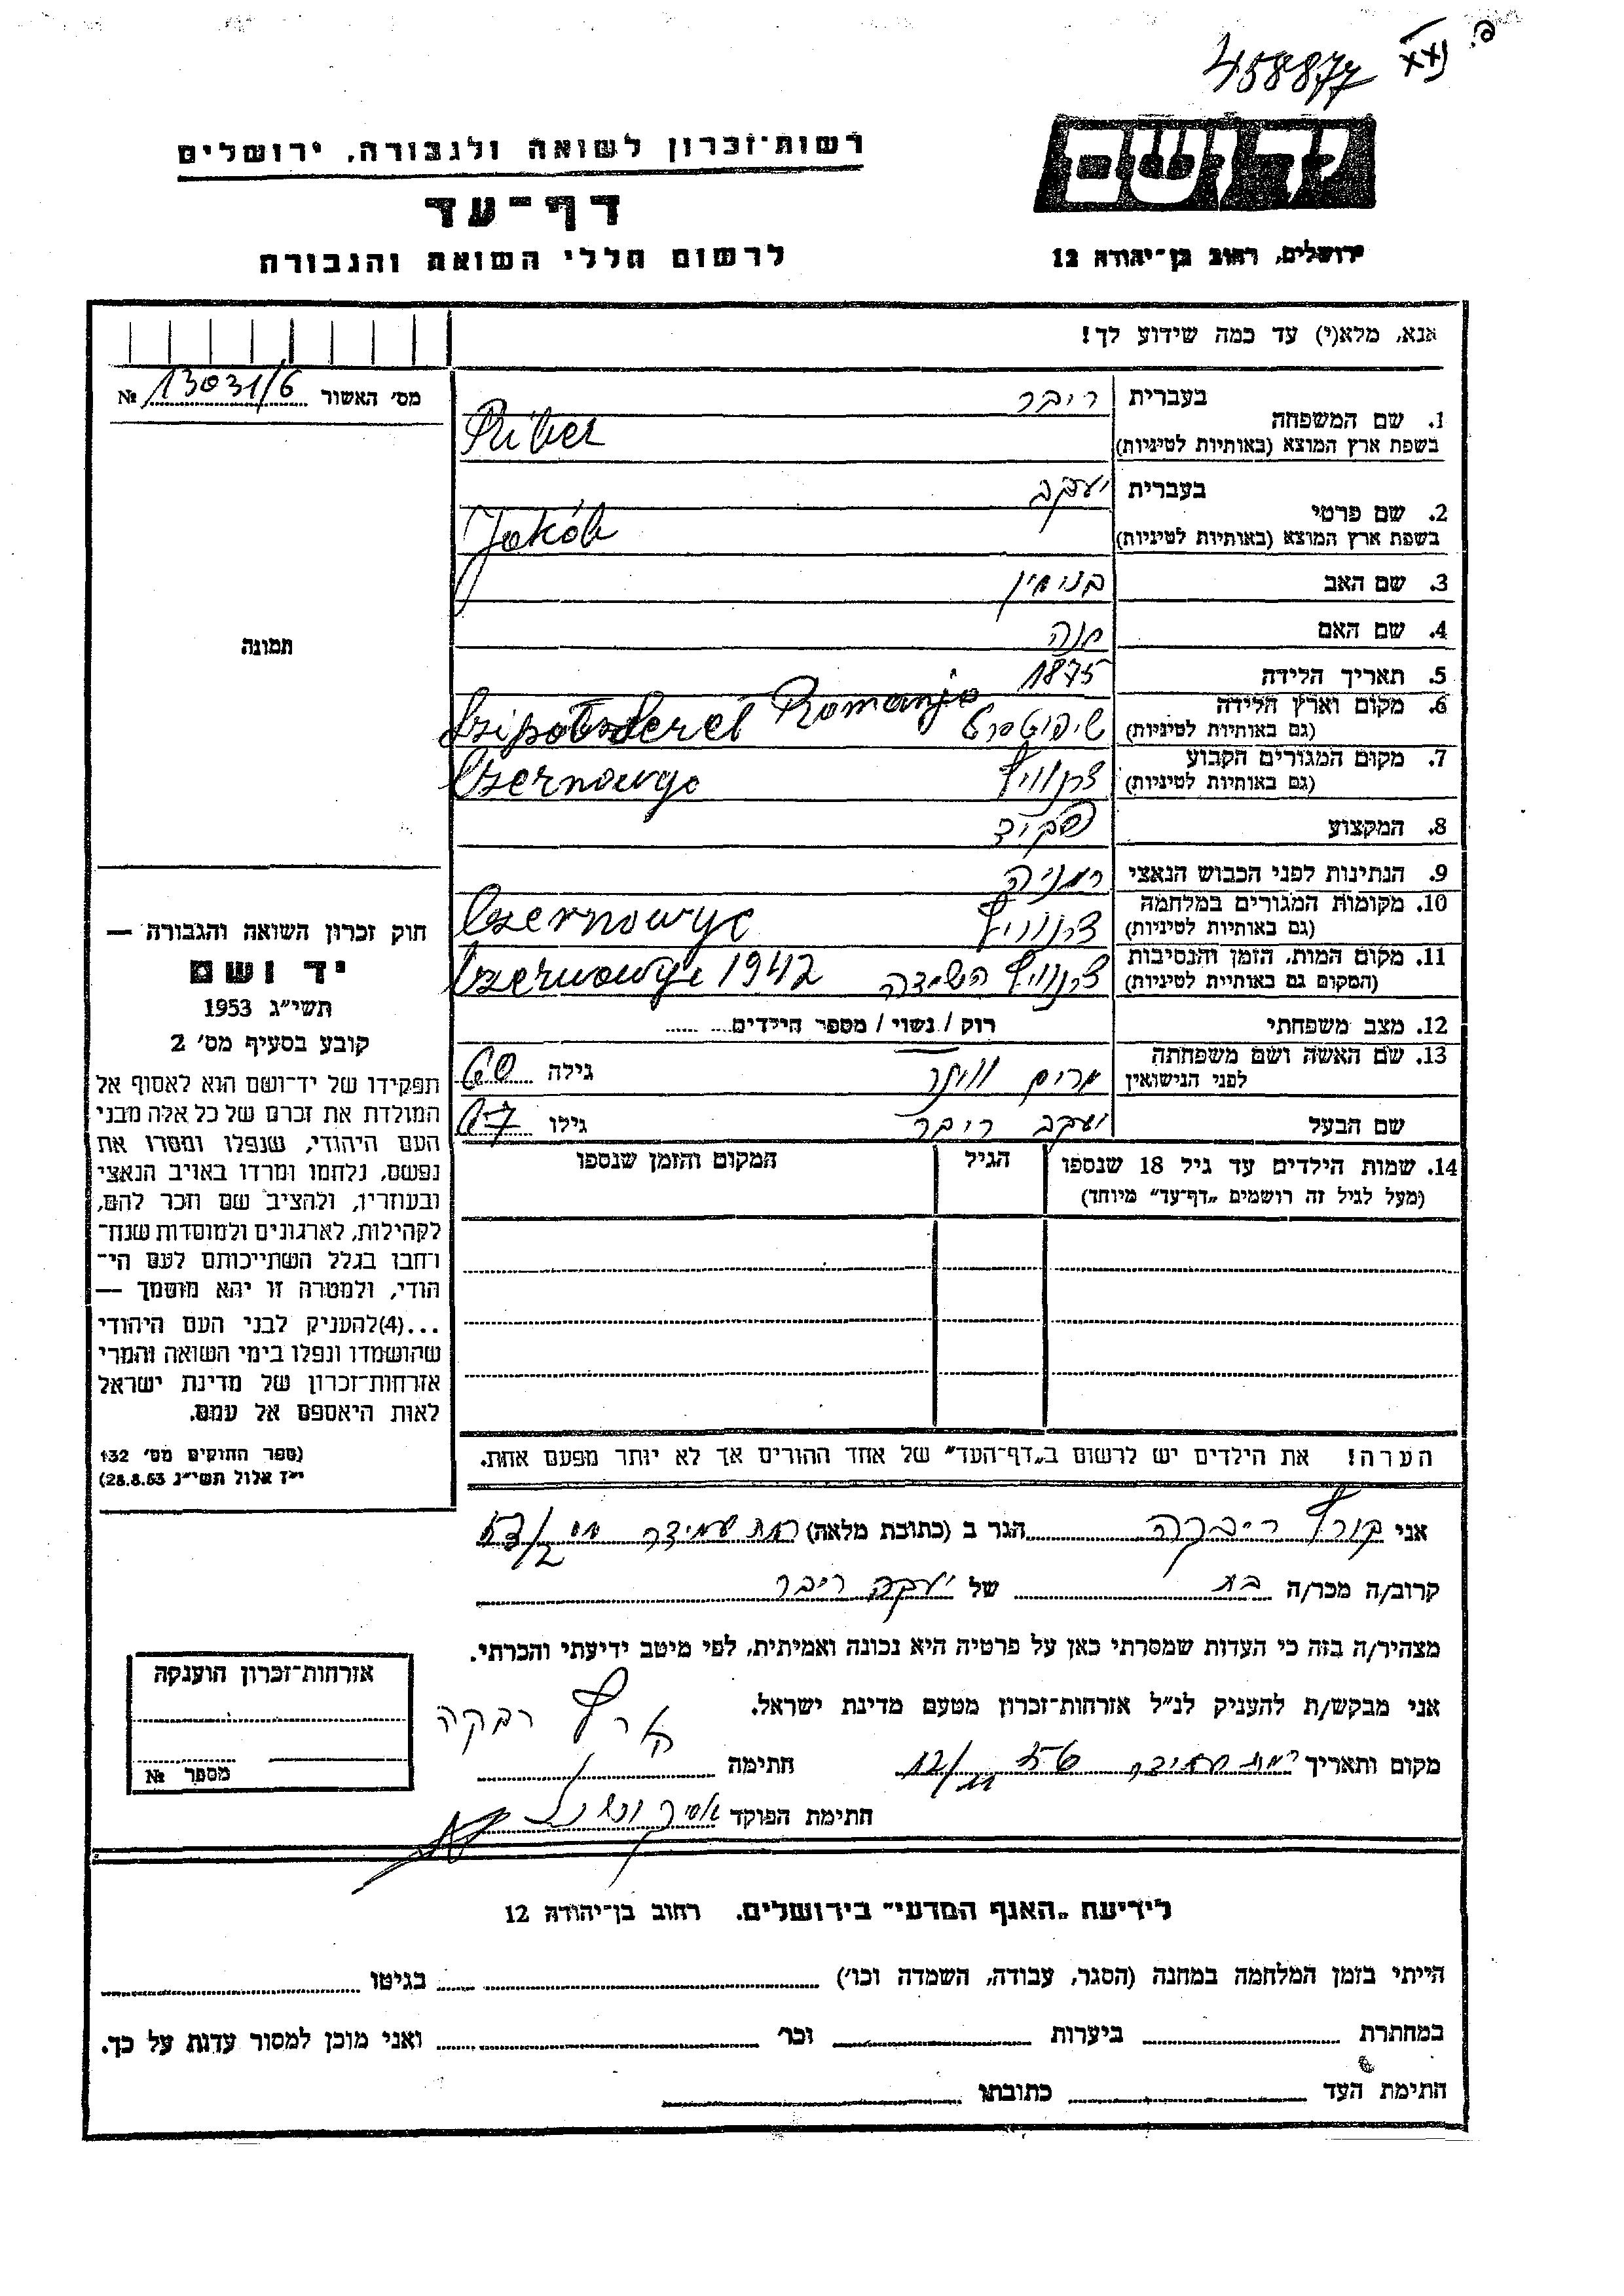 458877
רשות־זכרון לשואה ולגבורה, ירושלים
יד ושם
דף־עד
לרשום חללי השואה והגבורה
ירושלים, רחוב בן־יהודה 12
אנא, מלא(י) עד כמה שידוע לך!
מס׳ האשור № 13031/6
בעברית ריבר
1. שם המשפחה
בשפת ארץ המוצא (באותיות לטיניות) Riber
בעברית יעקב
2. שם פרטי
בשפת ארץ המוצא (באותיות לטיניות) Jakób
3. שם האב בנימין
4. שם האם חנה
5. תאריך הלידה 1875
6. מקום וארץ הלידה Romanja
(גם באותיות לטיניות)
7. מקום המגורים הקבוע
(גם באותיות לטיניות) Czernowyc
8. המקצוע פקיד
9. הנתינות לפני הכבוש הנאצי רמניה
10. מקומות המגורים במלחמה
(גם באותיות לטיניות) Czernowyc
11. מקום המות, הזמן והנסיבות
(המקום גם באותיות לטיניות) השמדה 1942
12. מצב משפחתי רוק / נשוי / מספר הילדים
13. שם האשה ושם משפחתה
לפני הנישואין מרים גילה 60
שם הבעל יעקב ריבר גילו 67
14. שמות הילדים עד גיל 18 שנספו הגיל המקום והזמן שנספו
(מעל לגיל זה רושמים „דף־עד" מיוחד)
הערה! את הילדים יש לרשום ב„דף־העד" של אחד ההורים אך לא יותר מפעם אחת.
תמונה
חוק זכרון השואה והגבורה —
יד ושם
תשי״ג 1953
קובע בסעיף מס׳ 2
תפקידו של יד־ושם הוא לאסוף אל
המולדת את זכרם של כל אלה מבני
העם היהודי, שנפלו ומסרו את
נפשם, נלחמו ומרדו באויב הנאצי
ובעוזריו, ולהציב שם וזכר להם,
לקהילות, לארגונים ולמוסדות שנח־
רחבו בגלל השתייכותם לעם הי־
הודי, ולמטרה זו יהא מוסמך —
...(4)להעניק לבני העם היהודי
שהושמדו ונפלו בימי השואה והמרי
אזרחות־זכרון של מדינת ישראל
לאות היאספם אל עמם.
(ספר החוקים מס׳ 132
י״ז אלול תשי״ג 28.8.53)
אני ריבקה הגר ב (כתובת מלאה) רמת עמידר
קרוב/ה מכר/ה בת של יעקב ריבר
מצהיר/ה בזה כי העדות שמסרתי כאן על פרטיה היא נכונה ואמיתית, לפי מיטב ידיעתי והכרתי.
אני מבקש/ת להעניק לנ״ל אזרחות־זכרון מטעם מדינת ישראל.
מקום ותאריך רמת עמידר חתימה רבקה
חתימת הפוקד
אזרחות־זכרון הוענקה
מספר №
לידיעת „האגף המדעי" בירושלים. רחוב בן־יהודה 12
הייתי בזמן המלחמה במחנה (הסגר, עבודה, השמדה וכו׳) בגיטו
במחתרת ביערות וכו׳ ואני מוכן למסור עדות על כך.
חתימת העד כתובתו